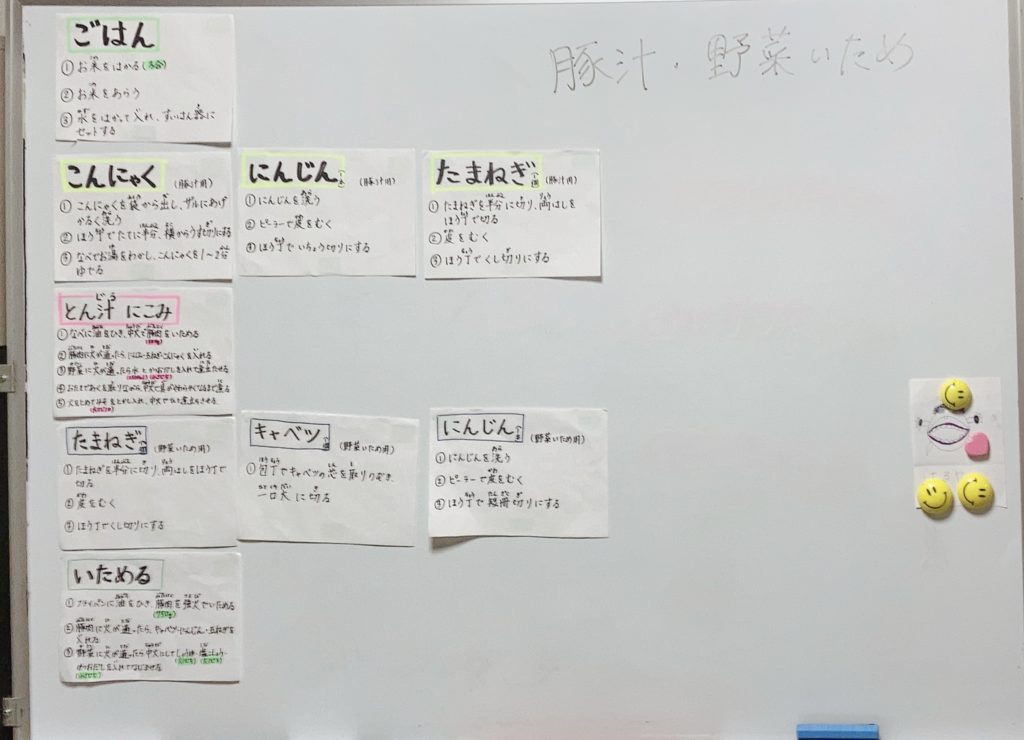 豚汁・野菜いため
ごはん
① お米をはかる(5合)
② お米をあらう
③ 水をはかって入れ、すいはん器に
セットする
こんにゃく (豚汁用)
① こんにゃくを袋から出し、ザルにあげ
かるく洗う
② ほう丁でたてに半分、横からうす切りにする
③ なべでお湯をわかし、こんにゃくを1〜2分
ゆでる
にんじん (豚汁用)
① にんじんを洗う
② ピーラーで皮をむく
③ ほう丁でいちょう切りにする
たまねぎ (豚汁用)
① たまねぎを半分に切り、両はしを
ほう丁で切る
② 皮をむく
③ ほう丁でくし切りにする
とん汁 にこみ
① なべに油をひき、中火で豚肉をいためる
② 豚肉に火が通ったら、にんじん・玉ねぎ・こんにゃくを入れる
③ 野菜に火が通ったら水とかつおだしを入れて煮立たせる
④ おたまであくを取りながら、中火で具がやわらかくなるまで煮る
⑤ 火をとめてみそをとかし入れ、中火で煮立たせる
たまねぎ (野菜いため用)
① たまねぎを半分に切り、両はしをほう丁で
切る
② 皮をむく
③ ほう丁でくし切りにする
キャベツ (野菜いため用)
① 包丁でキャベツの芯を取りのぞき、
一口大に切る
にんじん (野菜いため用)
① にんじんを洗う
② ピーラーで皮をむく
③ ほう丁で短冊切りにする
いためる
① フライパンに油をひき、豚肉を強火でいためる
(750g)
② 豚肉に火が通ったら、キャベツ・にんじん・玉ねぎを
入れる
③ 野菜に火が通ったら中火にしてしょうゆ・塩こしょう・
かつおだしを入れてなじませる